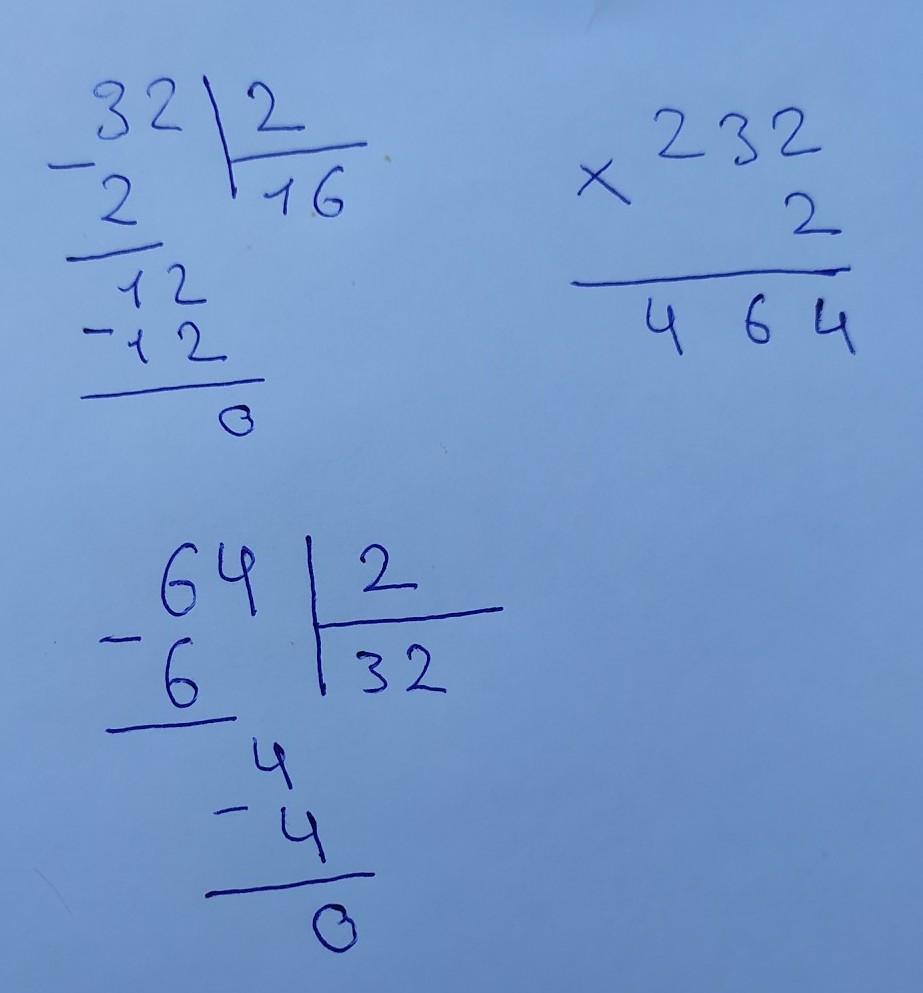 32 2
- 2 16
12
- 12
0
232
x 2
464
64 2
- 6 32
4
- 4
0